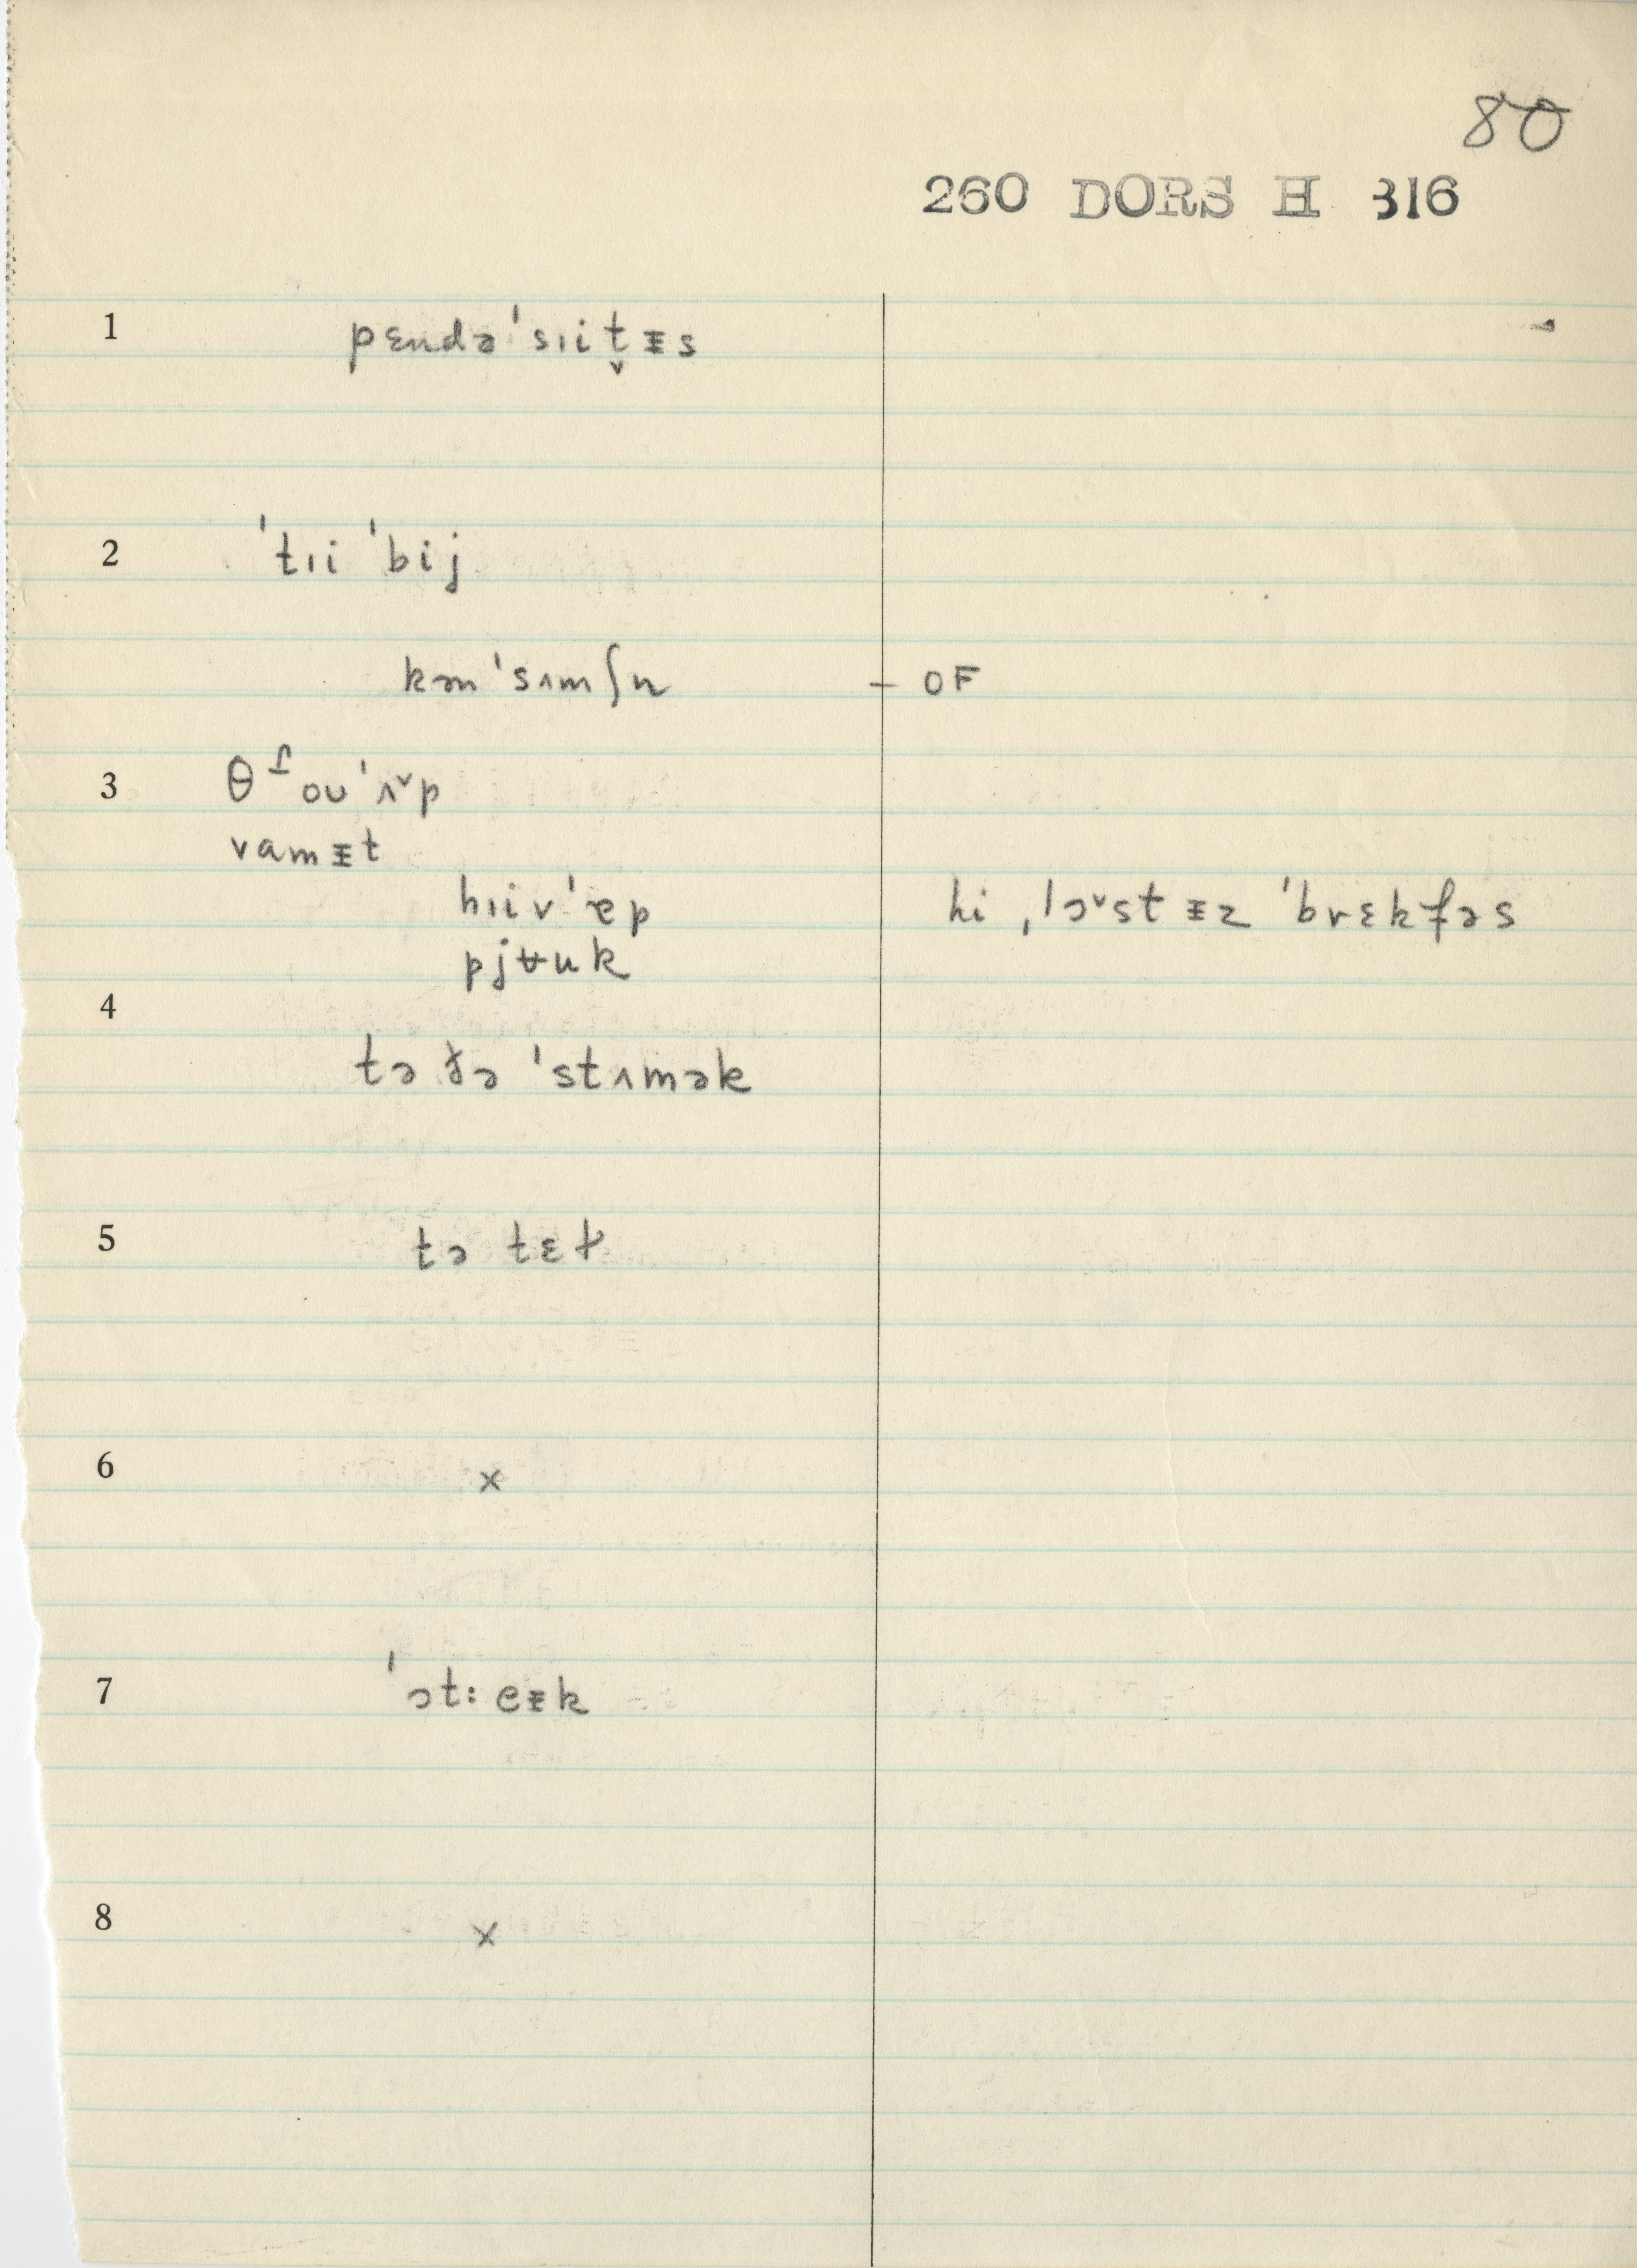 80
260 DORS H 316
1 pɛndə ˈsɪit̬ᵻs
2 ˈtɪi ˈbij
kən ˈsʌmʃn — OF
3 ou ˈʌ˅p
vamᵻt
hɪiv ˈɐp hi ˌlɔ˅st ᵻz ˈbrɛkfəs
pjʉuk
4
tə ðə ˈstʌmək
5 tə tɛɫ
6 ×
7 ˈɔt:eᵻk
8 ×